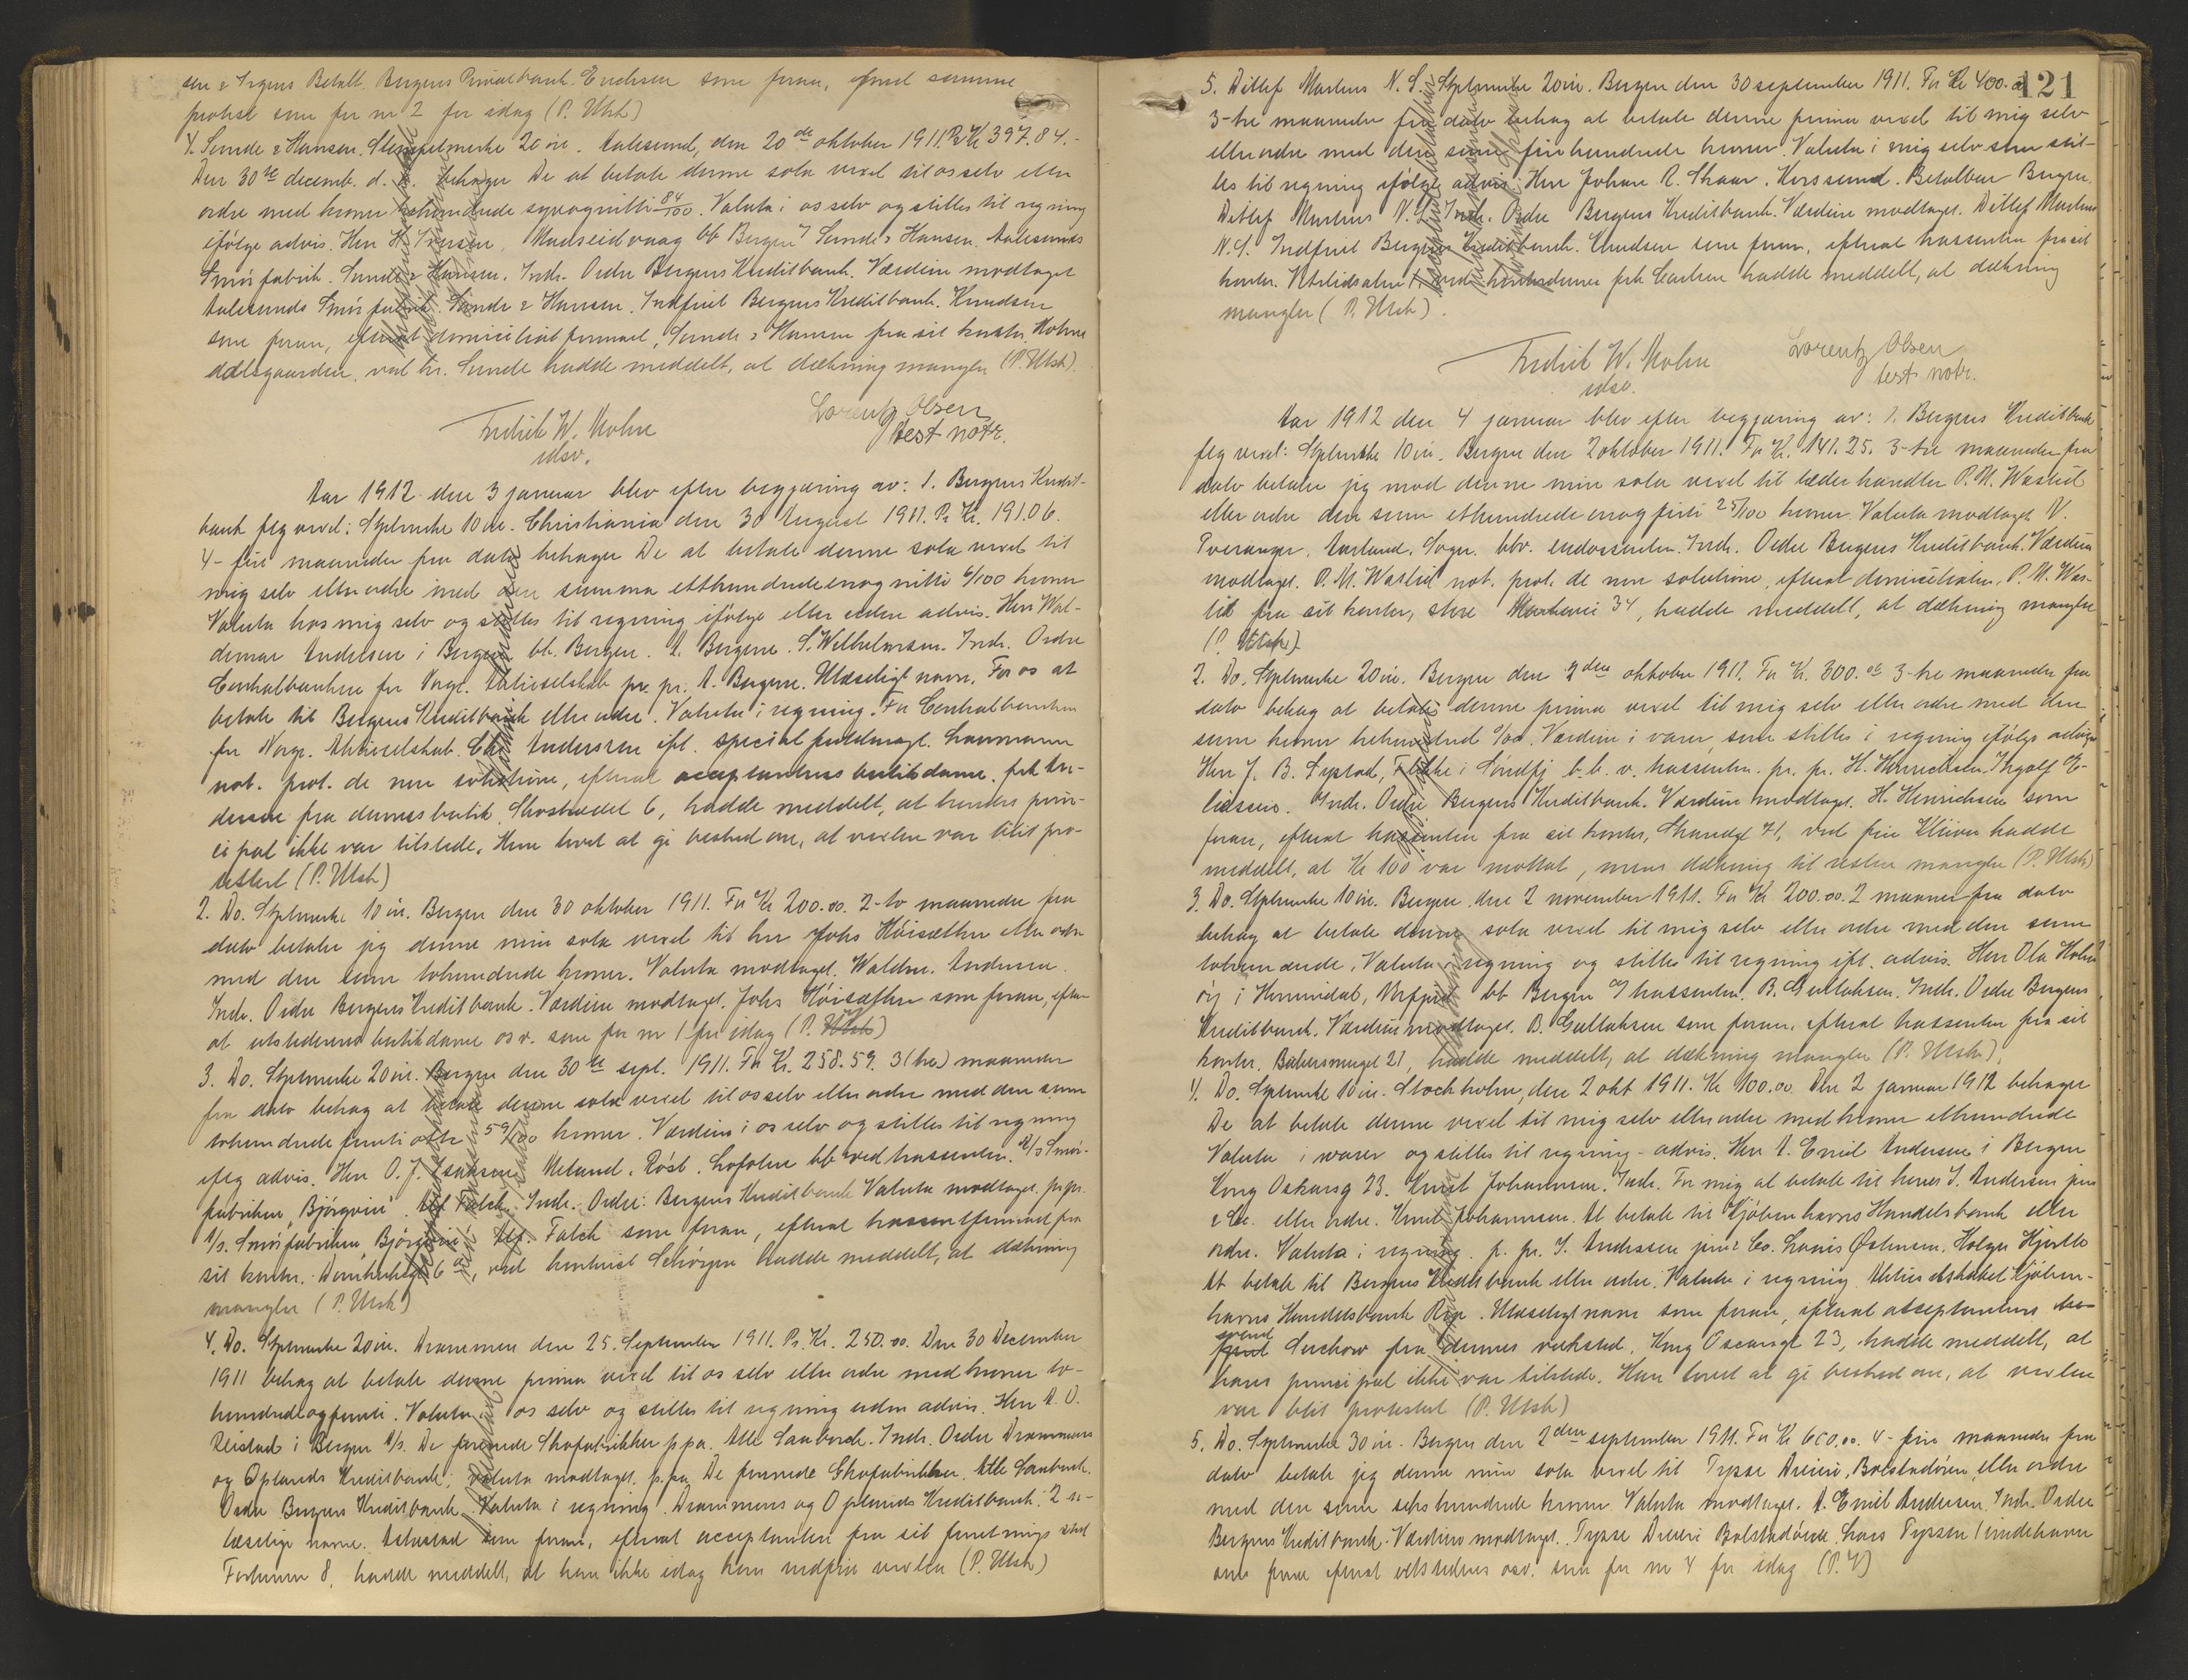 sen & Irgens Betalt. Bergens Privatbank. Erichsen som foran, efterat samme
probst som for nr 2 for idag (P. Utsh)
4. Sunde & Hansen. Stempelmerke 20 öre. Aalesund, den 20de oktober 1911. Pr Kr 397.84.-
Den 30te decemb. d. a. behager De at betale denne sola vexel til os selv eller
ordre med kroner trehundrede syvognitti 84/100. Valuta i os selv og stilles til regning
ifölge advis. Herr H. Iversen, bb Bergen Sunde & Hansen. Aalesunds
Smörfabrik. Sunde & Hansen. Indr. Ordre Bergens Kreditbank. Værdien modtaget
Aalesunds Smörfabrik. Sunde & Hansen. Indfriet Bergens Kreditbank. Knudsen
som foran, efterat domiciliat firmaet, Sunde & Hansen fra sit kontor, Holme
dalsgaarden, ved hr. Sunde hadde meddelt, at dækning mangler (P. Utsh).
Fredrik W. Mohn
edsv.
Lorentz Olsen
test. notr.
Aar 1912 den 3 januar blev efter begjæring av: 1. Bergens Kredit-
bank flg vexel: Stplmerke 10 öre. Christiania den 30 August 1911. Pr Kr. 191.06.
4- fire maaneder fra dato behager De at betale denne sola vexel til
mig selv eller ordre med den summa etthundredeenognitti 6/100 kroner
Valuta hos mig selv og stilles til regning ifölge eller uden advis. Herr Wal-
demar Andersen i Bergen bb. Bergen. A. Bergene. S. Wilhelmsen. Indr. Ordre
Centralbanken for Norge. Aktieselskab pr. pr. A. Bergene. Ulæseligt navn. For os at
betale til Bergens Kreditbank eller ordre. Valuta i regning. For Centralbanken
for Norge. Aktieselskab. Chr. Anderssen ifl. special fuldmagt. Laumann
not. prot. de non solutione, efterat acceptantens butikdame, frk An-
dersen fra dennes butik, Skostrædet 6, hadde meddelt, at hendes prin-
cipal ikke var tilstede. Hun lovet at gi besked om, at vexlen var blit pro-
testert (P. Utsh)
2. Do. Stplmerke 10 öre. Bergen den 30 oktober 1911. For Kr 200.00. 2-to maaneder fra
dato betaler jeg denne min sola vexel til hr Johs Höisæther eller ordre
med den sum tohundrede kroner. Valuta modtaget. Waldem. Andersen.
Indr. Ordre Bergens Kreditbank. Værdien modtaget. Johs Höisæther som foran, efter-
at utstederens butikdame osv. som for nr 1 for idag (P. Utsh)
3. Do. Stplmerke 20 öre. Bergen den 30te sept. 1911. For Kr. 258.59. 3 (tre) maaneder
fra dato behag at betale denne sola vexel til os selv eller ordre med den sum
tohundrede femti otte 59/100 kroner. Værdien i os selv og stilles til regning
iflg advis. Herr O. J. Isaksen, Röst. Lofoten bb ved trassenten. A/S Smör-
fabriken "Björgvin". Alf Falch. Indr. Ordre: Bergens Kreditbank Valuta modtaget. pr.pr.
A/S. Smörfabriken "Björgvin" Alf. Falch som foran, efterat trassentfirmaet fra
sit kontor. 6, ved kontorist hadde meddelt, at dækning
mangler (P. Utsh)
4. Do. Stplmerke 20 öre. Drammen den 25. September 1911. Pr. Kr. 250.00. Den 30 December
1911 behag at betale denne prima vexel til os selv eller ordre med kroner to-
hundredeogfemti. Valuta os selv og stilles til regning uden advis. Herr A. O.
Reistad i Bergen A/S. De forenede Skofabrikker p.pa. Atle Sanborch. Indr. Ordre Drammens
og Oplands Kreditbank; valuta modtaget. p.pa. De forenede Skofabrikker. Atle Sanborch.
Ordre Bergens Kreditbank. Valuta i regning. Drammens og Oplands Kreditbank. 2 u-
læselige navne. som foran, efterat acceptanten fra sit forretnings sted
Fortunen 8, hadde meddelt, at han ikke idag kan indfrie vexlen (P. Utsh)
121
5. Ditlef Martens N. S. Stplmerke 20 öre. Bergen den 30 september 1911. For Kr 400.00
3-tre maaneder fra dato behag at betale denne prima vexel til mig selv
eller ordre med den sum firehundrede kroner. Valuta i mig selv som stil-
les til regning ifölge advis. Herr Johan R. Skaar. Betalbar Bergen.
Ditlef Martens N. S. Indr. Ordre Bergens Kreditbank. Værdien modtaget. Ditlef Martens
N. S. Indfriet Bergens Kreditbank. Knudsen som foran, efterat trassenten fra sit
kontor. ved kontordamen frk Carlsen hadde meddelt, at dækning
mangler (P. Utsh).
Fredrik W. Mohn
edsv.
Lorentz Olsen
test. notr.
Aar 1912 den 4 januar blev efter begjæring av: 1. Bergens Kreditbank
flg vexel: Stplmerke 10 öre. Bergen den 2 oktober 1911. For Kr. 141.25. 3-tre maaneder fra
dato betaler jeg mod denne min sola vexel til læderhandler P. M. Wastid
eller ordre den sum ethundrede enogfirti 25/100 kroner. Valuta modtaget N.
Tveranger, Aurland. Sogn. bbr. endossenten. Indr. Ordre Bergens Kreditbank. Værdien
modtaget. P. M. Wastid not. prot. de non solutione, efterat domiciliaten, P. M. Was-
tid fra sit kontor, store Markevei 34, hadde meddelt, at dækning mangler
(P. Utsh)
2. Do. Stplmerke 20 öre. Bergen den 2den oktober 1911. For Kr. 300.00 3-tre maaneder fra
dato behag at betale denne prima vexel til mig selv eller ordre med den
sum kroner trehundred 0/00. Værdien i varer, som stilles i regning ifölge advis
Herr J. B. Systad, Flekke i Söndfj. b.b. v. trassenten. pr. pr. H. Hinrichsen. Ingolf E-
liassen. Indr. Ordre Bergens Kreditbank. Værdien modtaget. H. Hinrichsen som
foran, efterat trassenten fra sit kontor, Strandgt 71, ved frk Klüver hadde
meddelt, at Kr 100 var mottat, mens dækning til resten mangler (P. Utsh)
3. Do. Stplmerke 10 öre. Bergen den 2 november 1911. For Kr 200.00. 2 maaner fra dato
behag at betale denne sola vexel til mig selv eller ordre med den sum
tohundrede. Valuta i regning og stilles til regning ifl. advis. Herr Ola Holm-
öy i bb Bergen trassenten. B. Gullaksen. Indr. Ordre Bergens
Kreditbank. Værdien modtaget. B. Gullaksen som foran, efterat trassenten fra sit
kontor, 21, hadde meddelt, at dækning mangler (P. Utsh).
4. Do. Stplmerke 10 öre. Stockholm, den 2 okt 1911. Kr 100.00 Den 2 januar 1912 behager
De at betale denne vexel til mig selv eller ordre med kroner etthundrede
Valuta i varer og stilles til regning - advis. Herr A. Emil Andersen i Bergen
Kong Oskarsg 23. Knut Johannsen. Indr. For mig at betale til herrer J. Andersen jun
& Co. eller ordre. Knut Johannsen. At betale til Kjöbenhavns Handelsbank eller
ordre. Valuta i regning. p. pr. J. Andersen jun & Co. Louis Østersen. Holger Hjorth
At betale til Bergens Kreditbank eller ordre. Valuta i regning. Aktieselskabet Kjöben-
havns Handelsbank. Ulæseligt navn som foran, efterat acceptantens
svend fra dennes verksted, Kong Oscarsgt 23, hadde meddelt, at
hans principal ikke var tilstede. Han lovet at gi besked om, at vexlen
var blit protestert (P. Utsh)
5. Do. Stplmerke 30 öre. Bergen den 2den september 1911. For Kr 600.00. 4-fire maaneder fra
dato betaler jeg denne min sola vexel til Tysse Dreieri, Bolstadören, eller ordre
med den sum sekshundrede kroner. Valuta modtaget. A. Emil Andersen. Indr. Ordre
Bergens Kreditbank. Værdien modtaget. Tysse Dreieri Bolstadören. Lars Tyssen (indehaver
som foran efterat utstederens osv. som for nr 4 for idag (P. V)